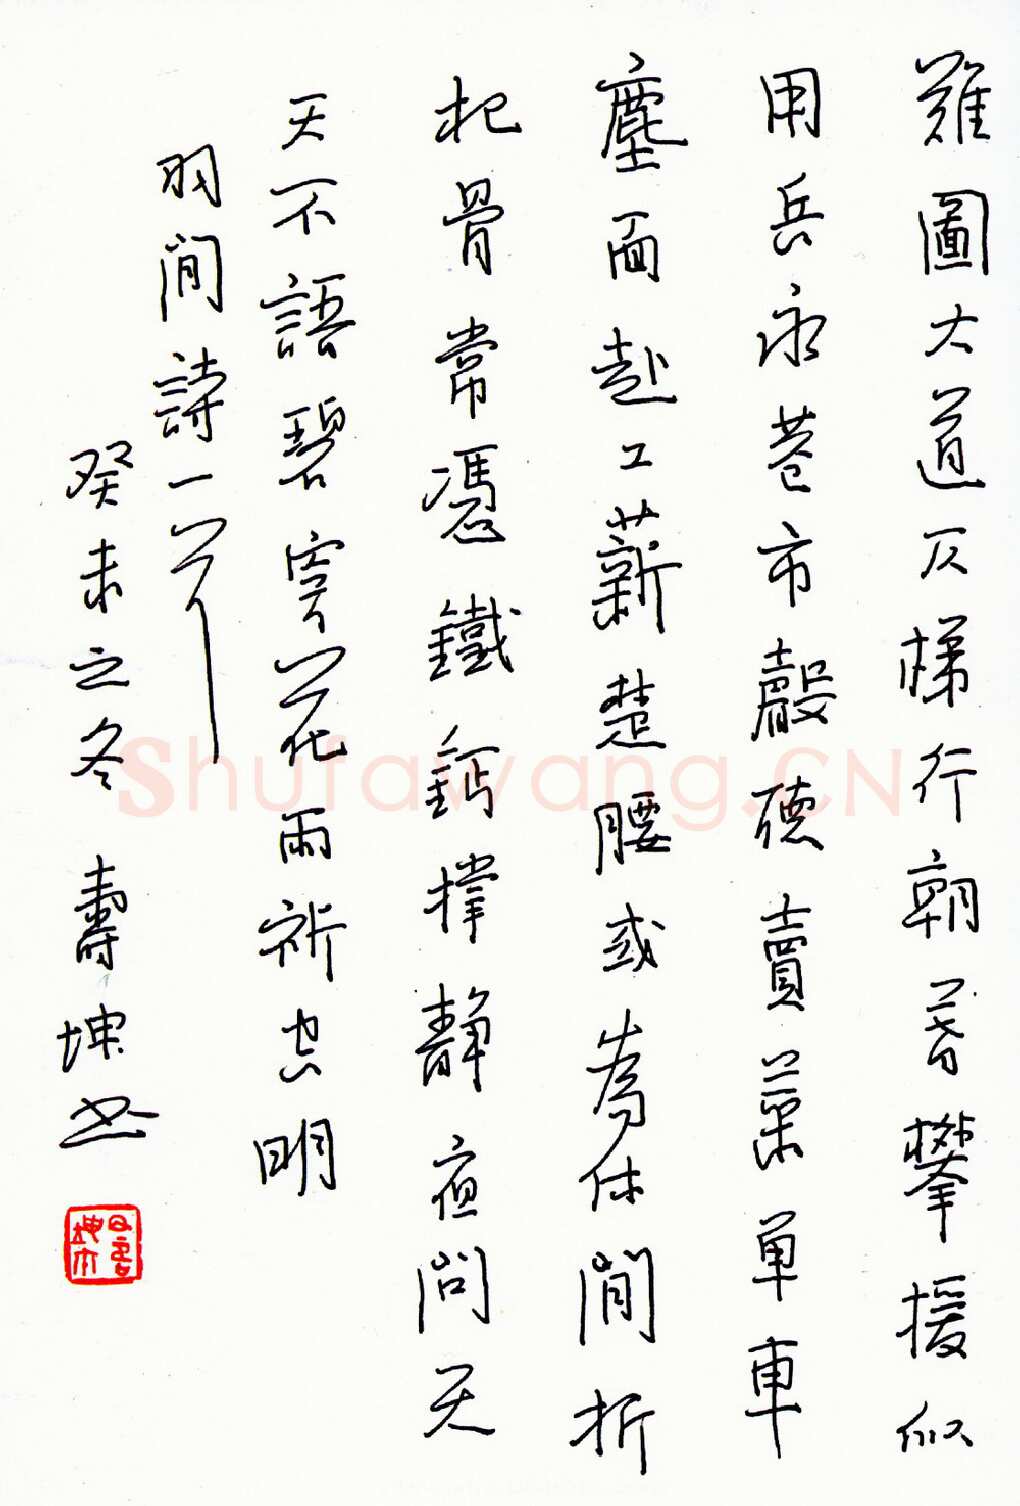 難圖大道仄梯行朝暮攀援似
用兵永巷市聲聽賣菜單車
塵面赴工薪楚腰或為休閒折
杞骨常憑鐵鈣撐靜夜問天
天不語碧穹花雨祈空明
羽閒詩一首
癸未之冬 壽坤書
Shufawang.CN